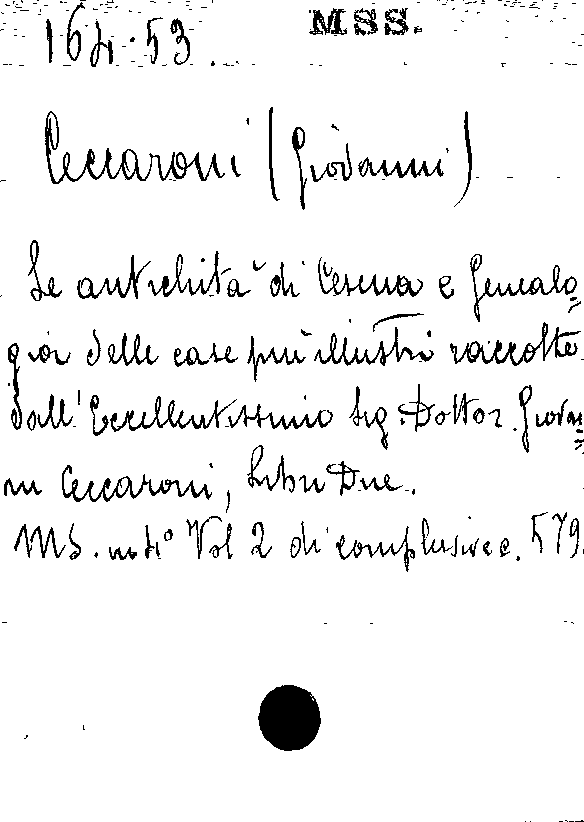 164.53.
MSS.
Ceccaroni (Giovanni)
Le antichità di Cesena e Genealo=
gia delle case più illustri raccolte
dall'Eccellentissimo Sig. Dottor. Giovan=
ni Ceccaroni, Libri Due.
MS. in 4° Vol 2 di complusive c. 579.